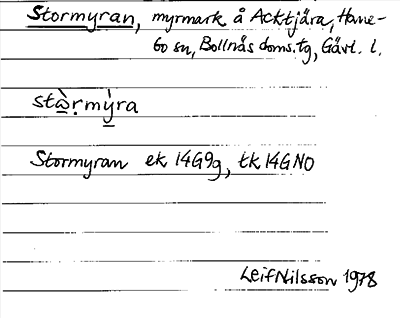 Stormyran, myrmark å Acktjära, Hane-
bo sn, Bollnäs doms.tg, Gävl. l.
stὼ̱ṛmỳ̱ra
Stormyran ek 14G9g, tk 14G NO
Leif Nilsson 1978